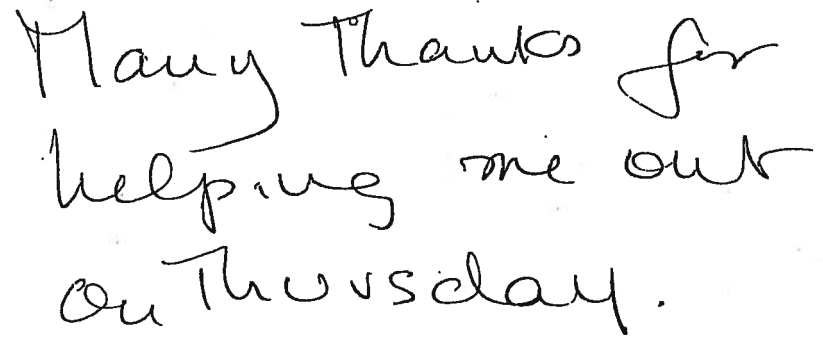 Many Thanks for
helping me out
on Thursday.